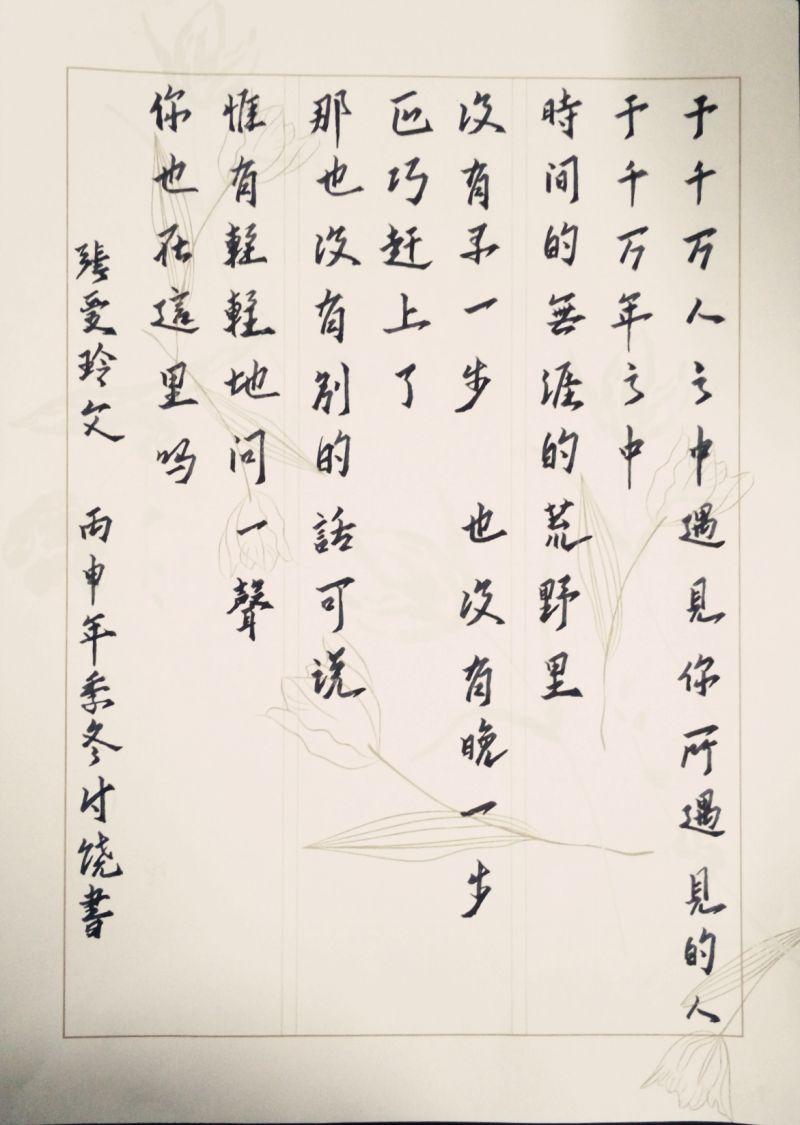 于千万人之中遇見你所遇見的人
于千万年之中
時间的無涯的荒野里
没有早一步 也没有晚一步
正巧赶上了
那也没有别的話可说
惟有輕輕地问一聲
你也在這里吗
張爱玲文 丙申年季冬付饶書